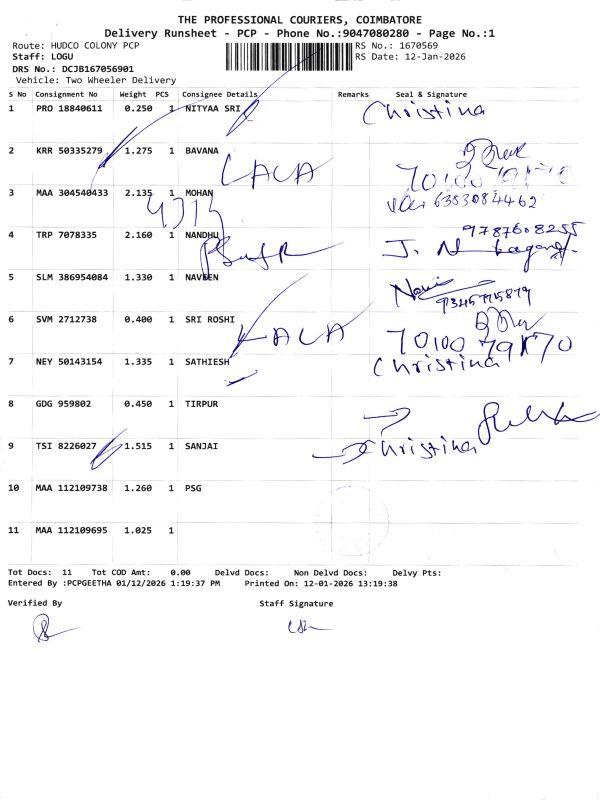 THE PROFESSIONAL COURIERS, COIMBATORE
Delivery Runsheet - PCP - Phone No.:9047080280 - Page No.:1
Route: HUDCO COLONY PCP RS No.: 1670569
Staff: LOGU RS Date: 12-Jan-2026
DRS No.: DCJB167056901
Vehicle: Two Wheeler Delivery
S No Consignment No Weight PCS Consignee Details Remarks Seal & Signature
1 PRO 18840611 0.250 1 NITYAA SRI Christina
2 KRR 50335279 1.275 1 BAVANA
3 MAA 304540433 2.135 1 MOHAN 6383084462
4 TRP 7078335 2.160 1 NANDHU 9787608255
5 SLM 386954084 1.330 1 NAVEEN
6 SVM 2712738 0.400 1 SRI ROSHI
7 NEY 50143154 1.335 1 SATHIESH Christina
8 GDG 959802 0.450 1 TIRPUR
9 TSI 8226027 1.515 1 SANJAI Christina
10 MAA 112109738 1.260 1 PSG
11 MAA 112109695 1.025 1
Tot Docs: 11 Tot COD Amt: 0.00 Delvd Docs: Non Delvd Docs: Delvy Pts:
Entered By :PCPGEETHA 01/12/2026 1:19:37 PM Printed On: 12-01-2026 13:19:38
Verified By Staff Signature